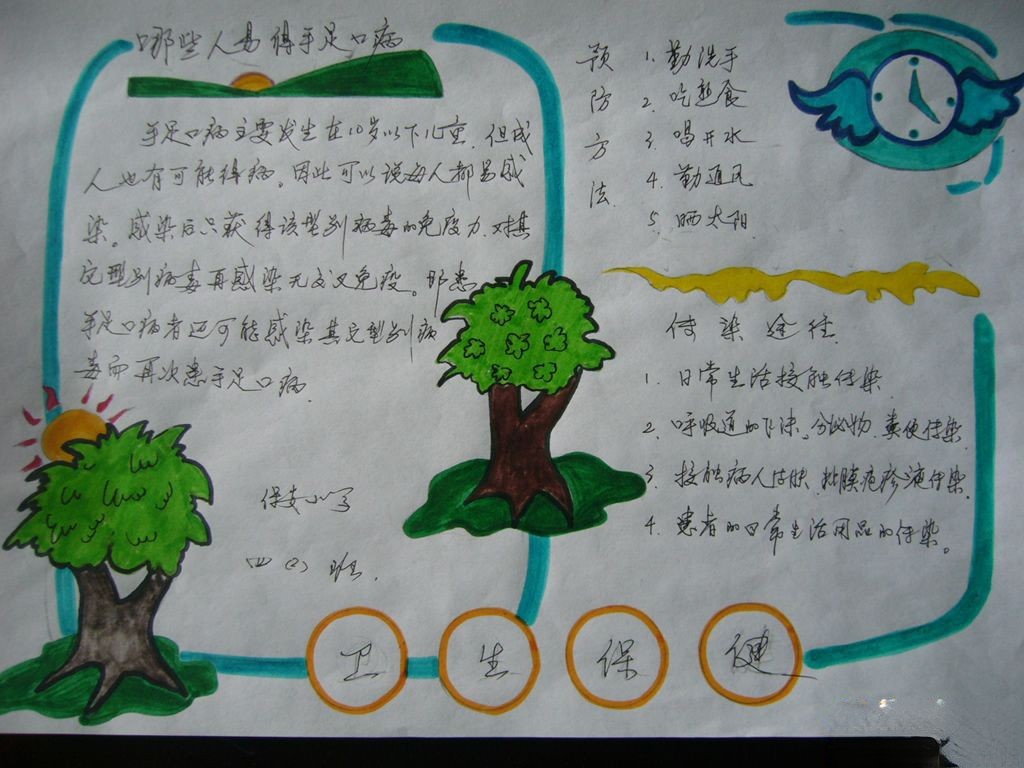 哪些人易得手足口病
手足口病主要发生在10岁以下儿童，但成
人也有可能得病。因此可以说每人都易感
染。感染后只获得该型别病毒的免疫力，对其
它型别病毒再感染无交叉免疫。即患
手足口病者还可能感染其它型别病
毒而再次患手足口病
保安小学
四（2）班.
预防方法
1. 勤洗手
2. 吃熟食
3. 喝开水
4. 勤通风
5. 晒太阳
传染途径
1. 日常生活接触传染
2. 呼吸道的飞沫、分泌物、粪便传染
3. 接触病人皮肤、粘膜疱疹液传染.
4. 患者的日常生活用品的传染。
卫生保健